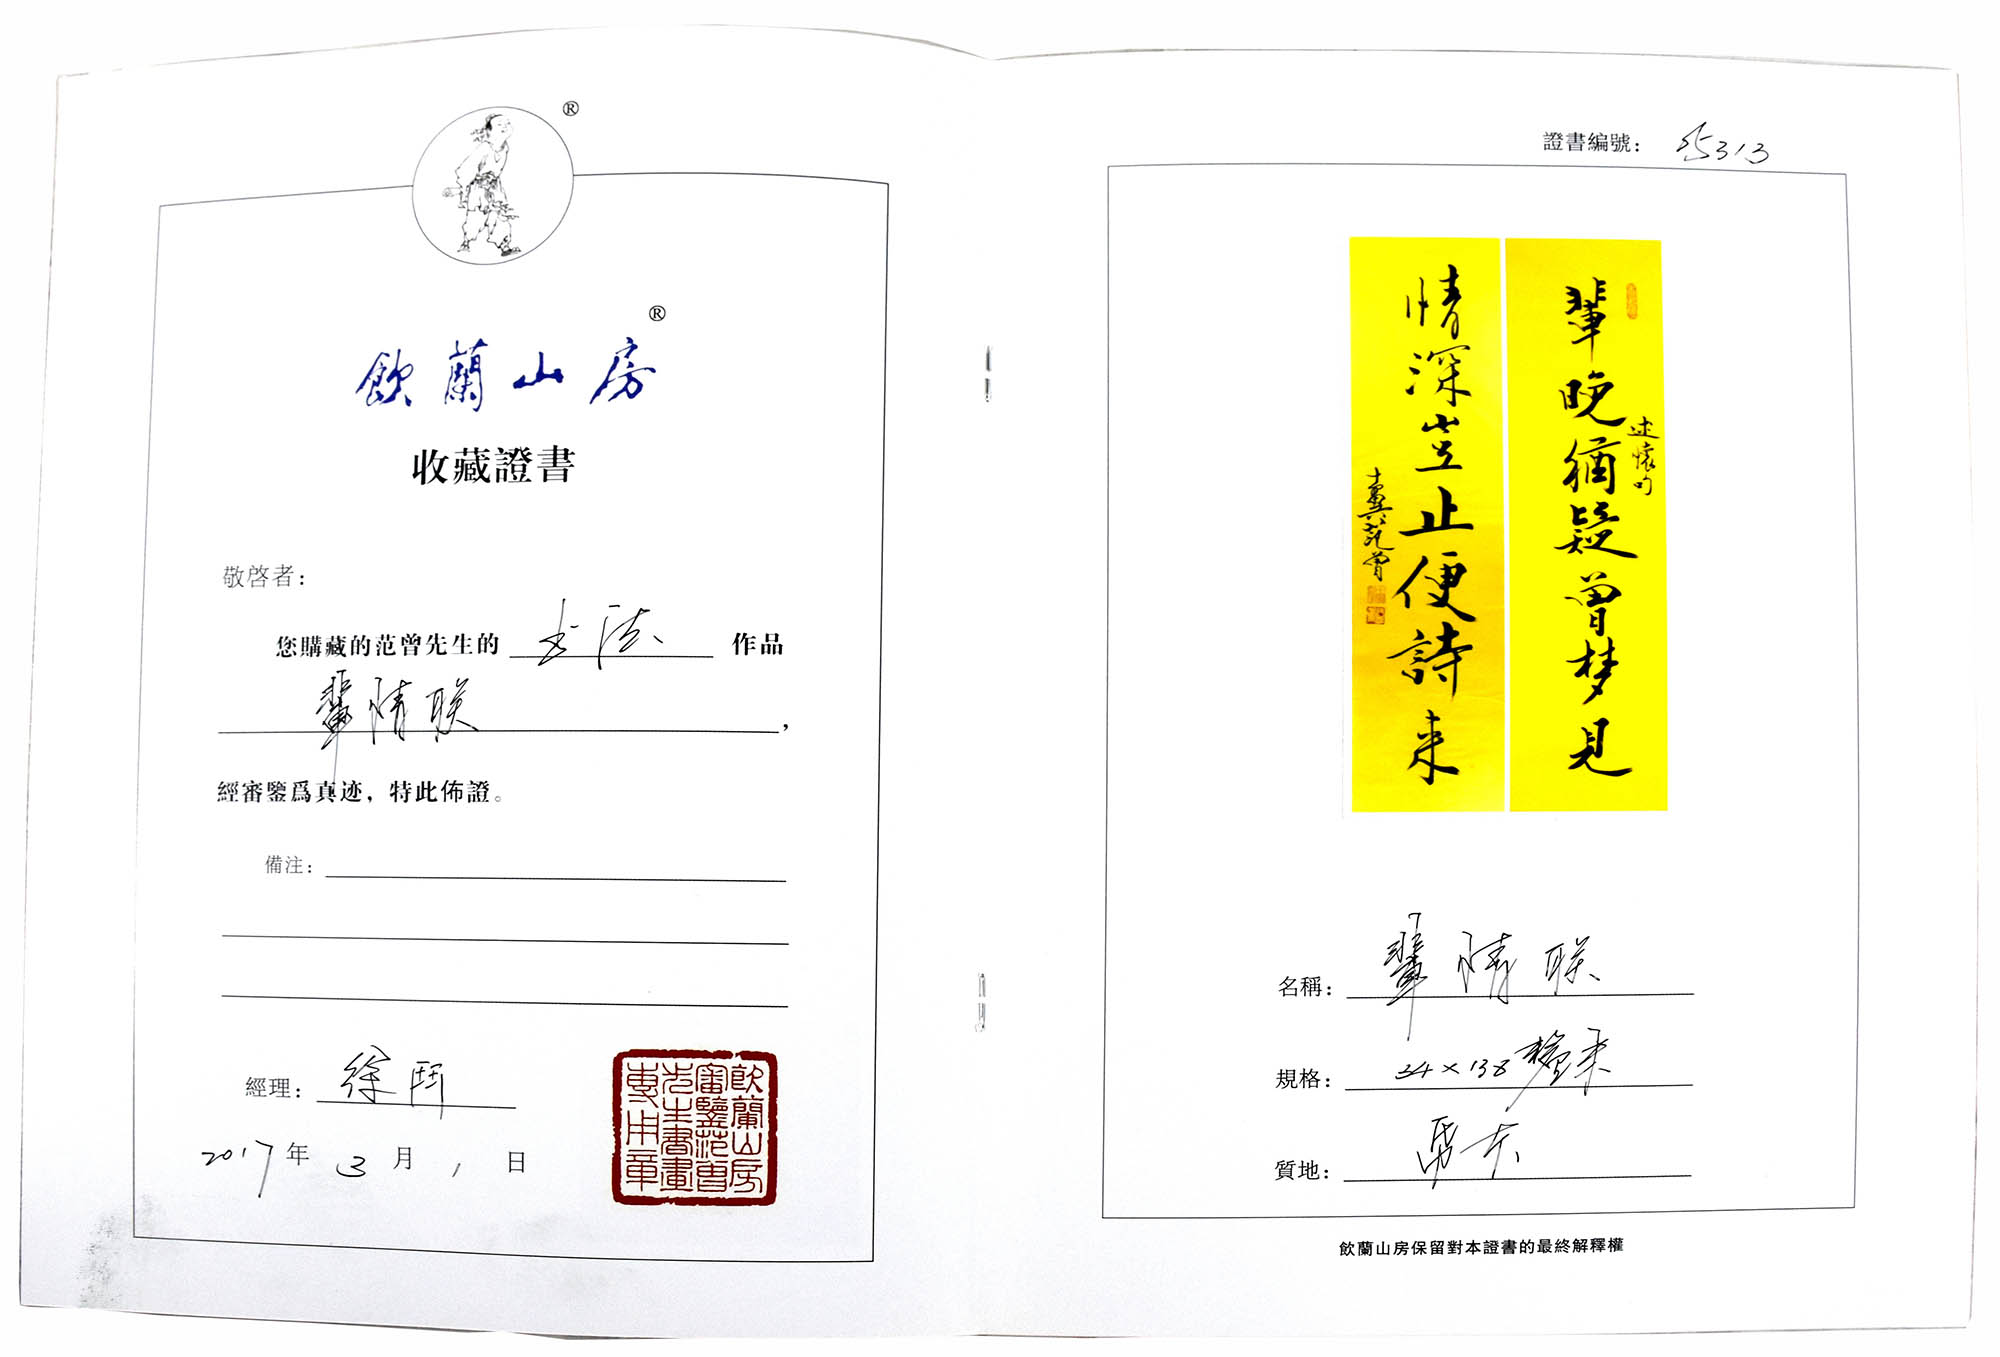 ®
飲蘭山房®
收藏證書
敬啓者：
您購藏的范曾先生的 书法 作品
輩情联，
經審鑒爲真迹，特此佈證。
備注：
經理： 徐
2017年3月1日
飲蘭山房
審鑒范曾
先生書畫
專用章
證書編號： 5313
輩晚猶疑曾梦見
述懷句
情深豈止便詩來
十翼范曾
名稱： 輩情联
規格： 34×138
質地：
飲蘭山房保留對本證書的最終解釋權